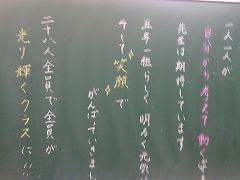 一人一人が
自分から考えて動くば
先生は期待しています
五年一組らしく明るく元気に
そして笑顔で
がんばっていきまし
二十八人全員で全員が
光り輝くクラスに!!